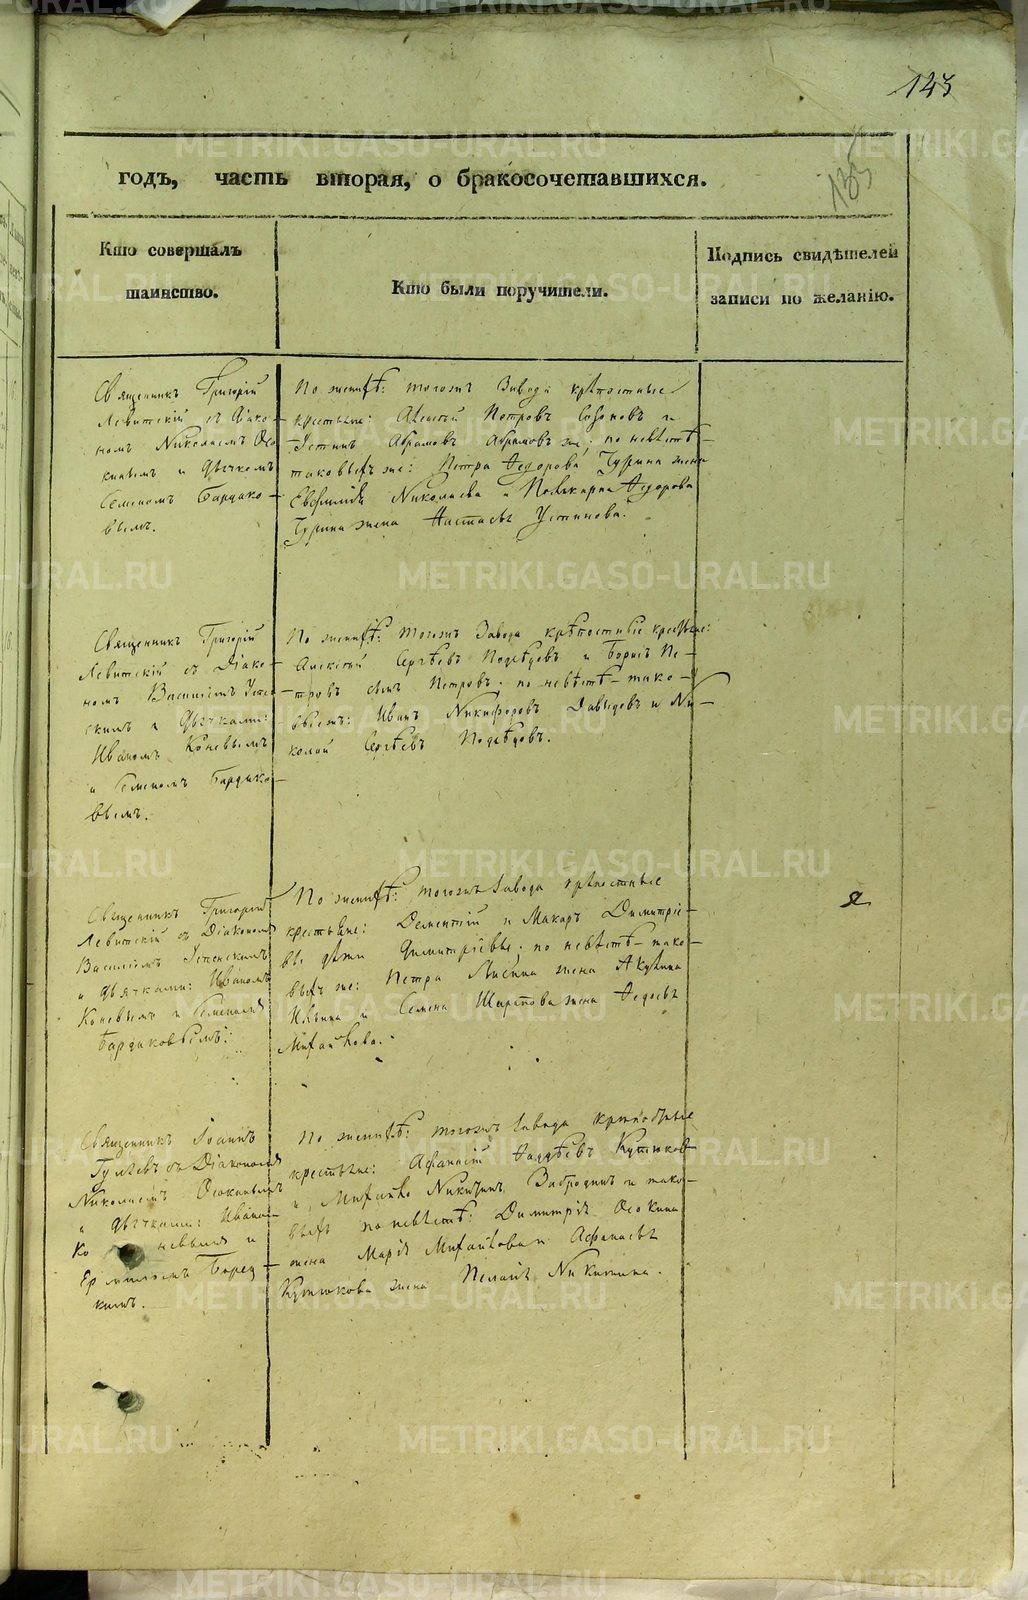 143
135
годъ, часть вторая, о бракосочетавшихся.
Кто совершалъ
таинство.
Кто были поручители.
Подпись свидѣтелей
записи по желанію.
Священникъ Григорій
Левитскій съ Діако-
номъ Николаемъ Осо
кинымъ и дьячкомъ
Семеномъ Бардако-
вымъ.
По женихѣ: тогожъ Завода крѣпостные
крестьяне: Алексѣй Петровъ и
Устинъ Абрамовъ Абрамовъ же; по невѣстѣ-
таковыежъ же: Петра Ѳедорова Гурина жена
Евфимія Николаева и Поликарпа Ѳедорова
Гурина жена Настасья Устинова.
Священникъ Григорій
Левитскій съ Діако-
номъ Василіемъ Успен
скимъ и дьячками:
Иваномъ Коневымъ
и Семеномъ Бардако-
вымъ.
По женихѣ: тогожъ Завода крѣпостные крестьяне:
Алексѣй Сергѣевъ и Борисъ Пе-
тровъ Петровъ; по невѣстѣ-тако-
выежъ: Иванъ Никифоровъ Давыдовъ и Ни-
колай Сергѣевъ
Священникъ Григорій
Левитскій съ Діакономъ
Василіемъ Успенскимъ
и дьячками: Иваномъ
Коневымъ и Семеномъ
Бардаковымъ:
По женихѣ: тогожъ Завода крѣпостные
крестьяне: Дементій и Макаръ Димитріе-
вы дѣти Димитріевы; по невѣстѣ-тако-
выежъ же: Петра жена Акулина
Ильина и Семена Шарапова жена Ѳедосья
Михайлова.
Я
Священникъ Іоаннъ
Гуляевъ съ Діакономъ
Николаемъ Осокинымъ
и дьячками: Ивано-
Ко невымъ и
Ермилом Борец-
кимъ.
По женихѣ: тогожъ Завода
крестьяне: Афанасій Ѳаддѣевъ Кутюковъ
и Михайло Никитинъ Забродинъ и тако-
выежъ по невѣстѣ: Димитрія Осокина
жена Марія Михайлова и Афанасья
Кутюкова жена Пелагея Никитина.